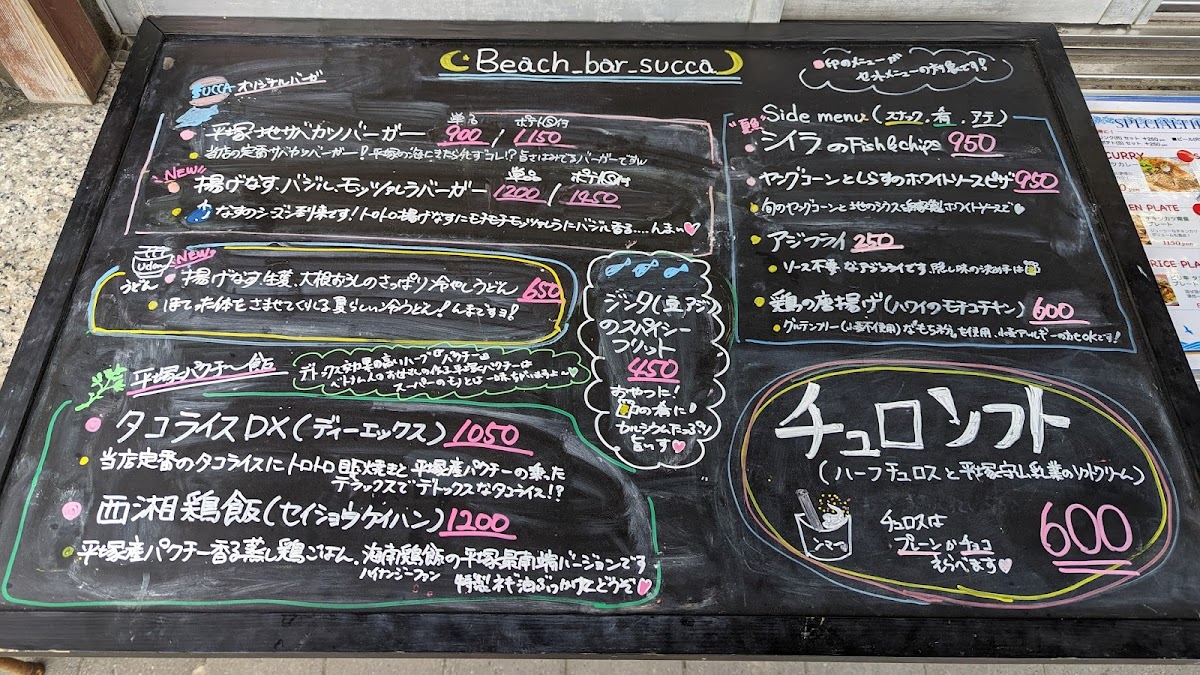 Beach_bar_succa
印のメニューが
セットメニューの対象です!
SUCCA オリジナルバーガー
単品 ポテト付
平塚・地サバカツバーガー 900 / 1150
当店の定番サバカツバーガー!平塚の海にきたら化すコレ!?
NEW
単品 ポテト付
揚げなす.バジル.モッツァレラバーガー 1200 /
なすのシーズン到来です!トロトロ揚げなすにモチモチモッツァレラにバジル香る....んまい
udon
うどん
NEW
揚げなす.生姜.大根おろしのさっぱり冷やしうどん 650
ほてった体をさませてくれる夏らしい冷うどん!んまですヨ!
平塚パクチー飯
デトックス効果の高いハーブ「パクチー」。
スーパーのモノとは一味ちがいますよ〜
タコライスDX(ディーエックス) 1050
当店定番のタコライスにトロトロ豚焼きと平塚産パクチーの乗った
デラックスでデトックスなタコライス!?
西湘鶏飯(セイショウケイハン) 1200
平塚産パクチー香る蒸し鶏ごはん.海南鶏飯の平塚最南端バージョンです
ハイナンジーファン
特製ネギ油ぶっかけてどうぞ
ジンタ(豆アジ)
のスパイシー
フリット
450
おやつに!
の肴に!
カルシウムたっぷり
旨いっす
Side menu(スナック.肴.アテ)
シイラのFish&chips 950
ヤングコーンとしらすのホワイトソースピザ 950
旬のヤングコーンと地のシラスを自家製ホワイトソースで
アジフライ 250
ソース不要なアジフライです.隠し味の決め手は
鶏の唐揚げ(ハワイのモチコチキン) 600
グルテンフリー(小麦不使用)なもち粉を使用.小麦アレルギーの方もOKです!
チュロソフト
(ハーフチュロスと平塚守山乳業のソフトクリーム)
チュロスは
プレーンかチョコ
えらべます
600
CURRY
RICE PLA